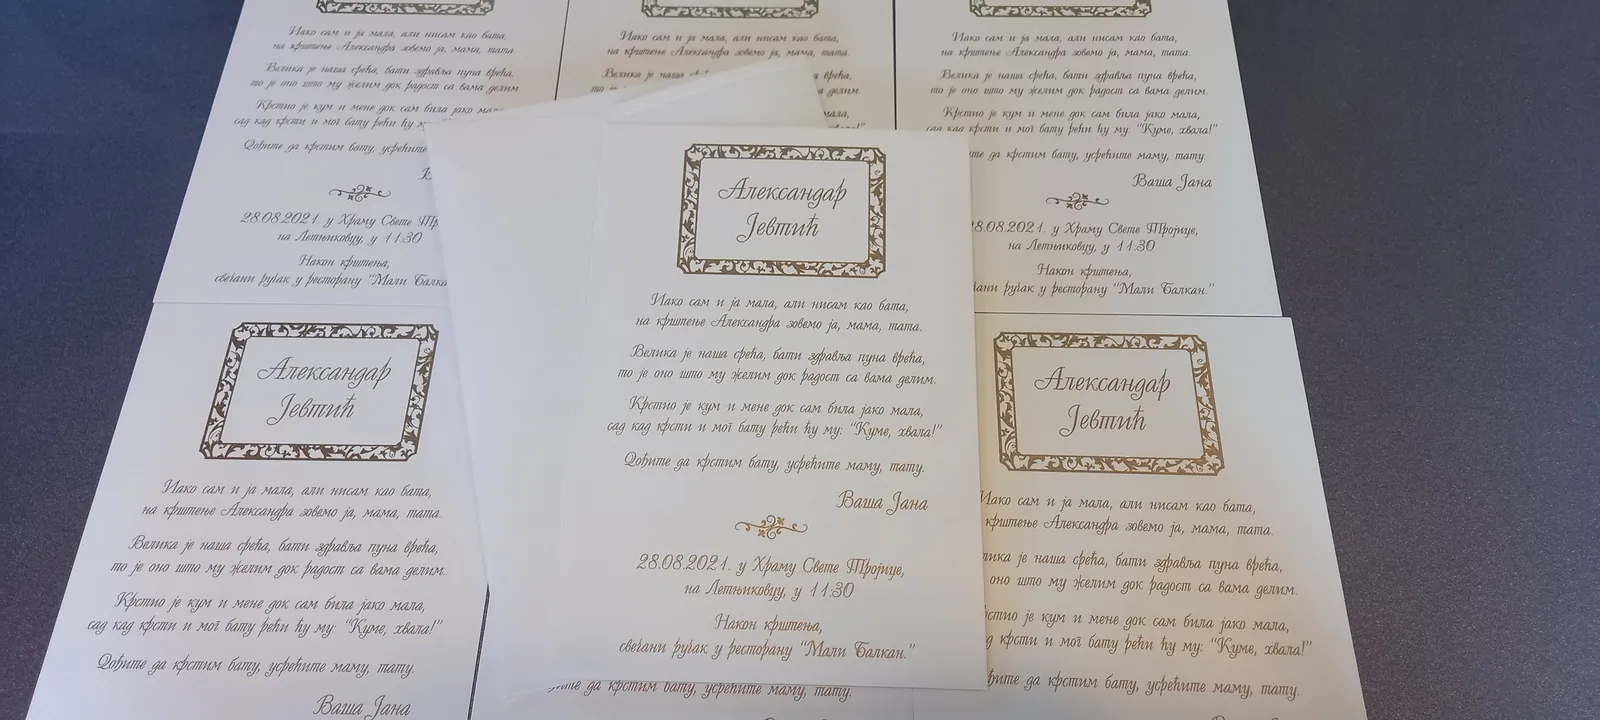 Иако сам и ја мала, али нисам као бата,
на крштење Александра зовемо ја, мама, тата.
Велика је наша срећа, бати здравља пуна врећа,
то је оно што му желим док радост са вама делим.
Крстио је кум и мене док сам била јако мала,
сад кад крсти и мог бату рећи ћу му:
Дођите да крстим бату, усрећите
28.08.2021. у Храму Свете
на Летњиковцу, у 11:30
Након крштења,
свечани ручак у ресторану "Мали
Иако сам и ја мала, али нисам као бата,
на крштење Александра зовемо ја, мама, тата.
Велика је наша
врећа,
то
делим.
Иако сам и ја мала, али нисам као бата,
на крштење Александра зовемо ја, мама, тата.
Велика је наша срећа, бати здравља пуна врећа,
то је оно што му желим док радост са вама делим.
Крстио је кум и мене док сам била јако мала,
сад кад крсти и мог бату рећи ћу му: "Куме, хвала!"
да крстим бату, усрећите маму, тату.
Ваша Јана
28.08.2021. у Храму Свете Тројице,
на Летњиковцу, у 11:30
Након крштења,
ручак у ресторану "Мали Балкан."
Александар
Јевтић
Иако сам и ја мала, али нисам као бата,
на крштење Александра зовемо ја, мама, тата.
Велика је наша срећа, бати здравља пуна врећа,
то је оно што му желим док радост са вама делим.
Крстио је кум и мене док сам била јако мала,
сад кад крсти и мог бату рећи ћу му: "Куме, хвала!"
Дођите да крстим бату, усрећите маму, тату.
Ваша Јана
28.08.2021. у Храму Свете Тројице,
на Летњиковцу, у 11:30
Након крштења,
свечани ручак у ресторану "Мали Балкан."
Александар
Јевтић
Иако сам и ја мала, али нисам као бата,
на крштење Александра зовемо ја, мама, тата.
Велика је наша срећа, бати здравља пуна врећа,
то је оно што му желим док радост са вама делим.
Крстио је кум и мене док сам била јако мала,
сад кад крсти и мог бату рећи ћу му: "Куме, хвала!"
Дођите да крстим бату, усрећите маму, тату.
Ваша Јана
Александар
Јевтић
Иако сам и ја мала, али нисам као бата,
крштење Александра зовемо ја, мама, тата.
је наша срећа, бати здравља пуна врећа,
оно што му желим док радост са вама делим.
је кум и мене док сам била јако мала,
кад крсти и мог бату рећи ћу му: "Куме, хвала!"
да крстим бату, усрећите маму, тату.
да крстим бату, усрећите маму, тату.